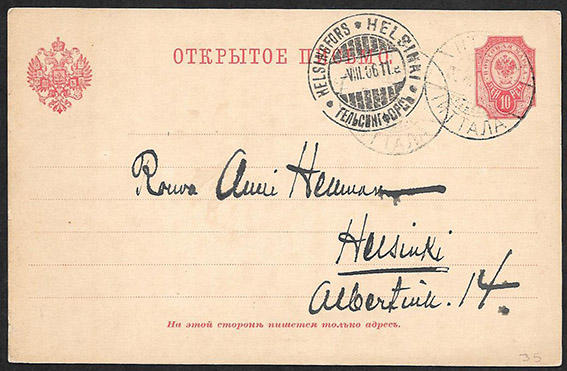 ОТКРЫТОЕ ПИСЬМО.
HELSINGFORS * HELSINKI
VIII.06.11.
ГЕЛЬСИНГФОРСЪ
ПОЧТОВАЯ МАРКА
10
МУТАЛА
УТАЛА
Rouva Anni Hellman
Helsinki
Albertink. 14.
На этой сторонѣ пишется только адресъ.
35